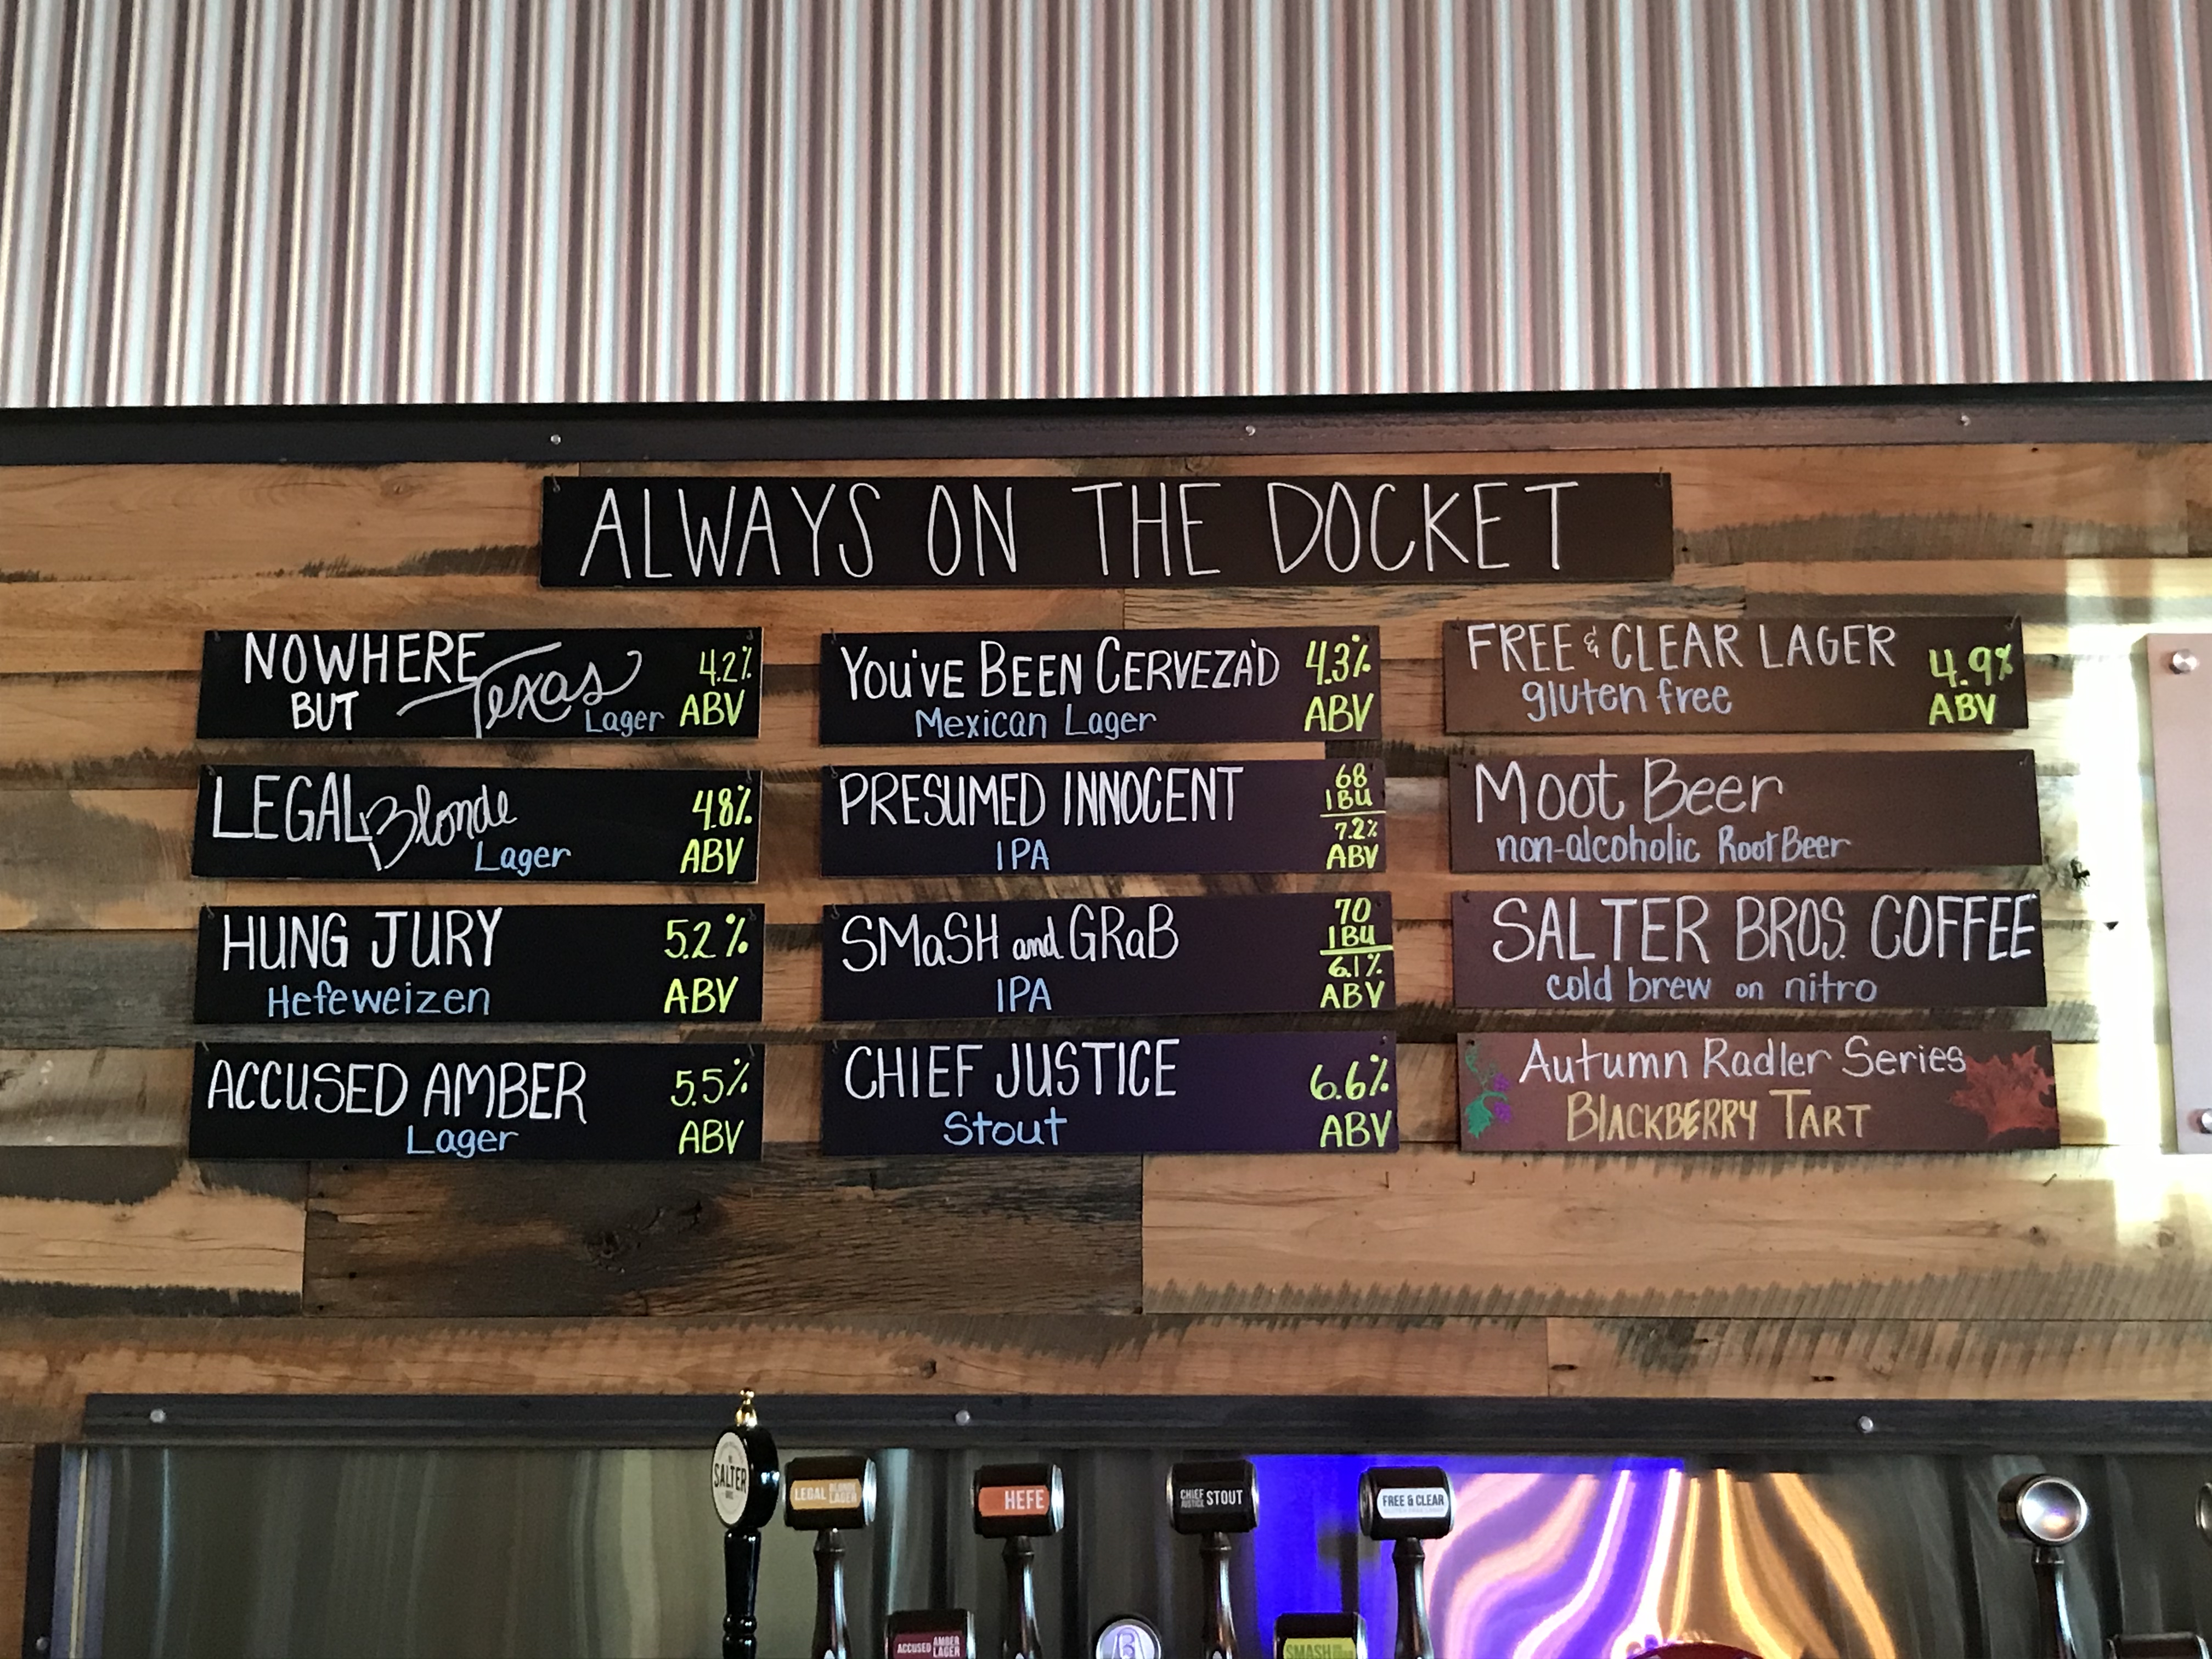 ALWAYS ON THE DOCKET
NOWHERE
BUT Texas
Lager
4.2%
ABV
LEGAL Blonde
Lager
4.8%
ABV
HUNG JURY
Hefeweizen
5.2%
ABV
ACCUSED AMBER
Lager
5.5%
ABV
YOU'VE BEEN CERVEZA'D
Mexican Lager
4.3%
ABV
PRESUMED INNOCENT
IPA
68
IBU
7.2%
ABV
SMaSH and GRaB
IPA
70
IBU
6.1%
ABV
CHIEF JUSTICE
Stout
6.6%
ABV
FREE & CLEAR LAGER
gluten free
4.9%
ABV
Moot Beer
non-alcoholic Root Beer
SALTER BROS. COFFEE
cold brew on nitro
Autumn Radler Series
BLACKBERRY TART
SALTER
LEGAL BLONDE
LAGER
HEFE
CHIEF
JUSTICE STOUT
FREE & CLEAR
ACCUSED AMBER
LAGER
SMASH